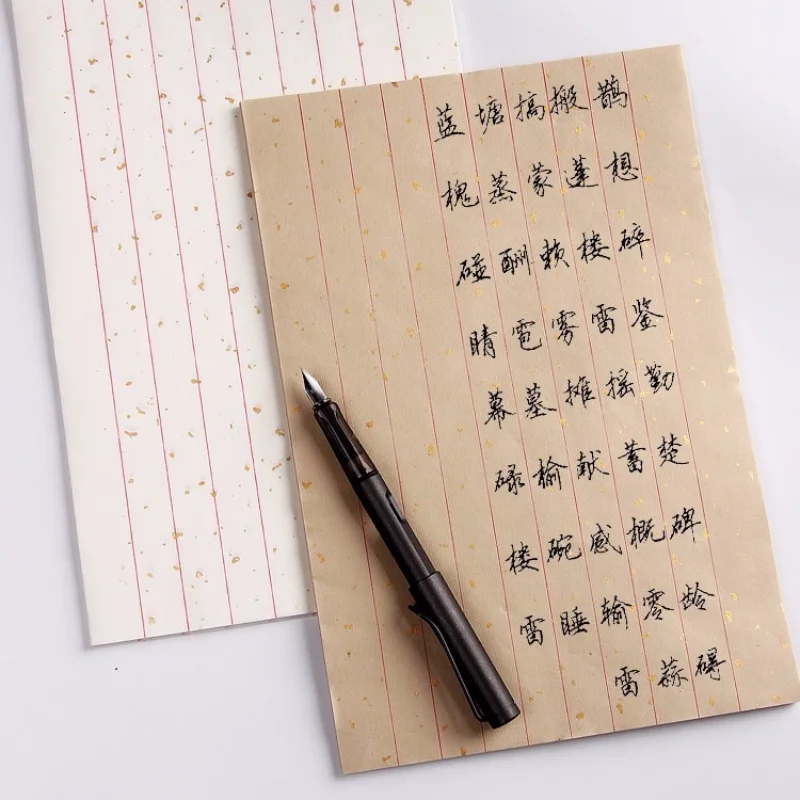 鹊想碎鉴勤楚碑龄碍
搬蓬楼雷摇蓄概零蒜
搞蒙赖雾摊献感输雷
塘蒸酬雹墓榆碗睡
蓝槐碰睛幕碌楼雷